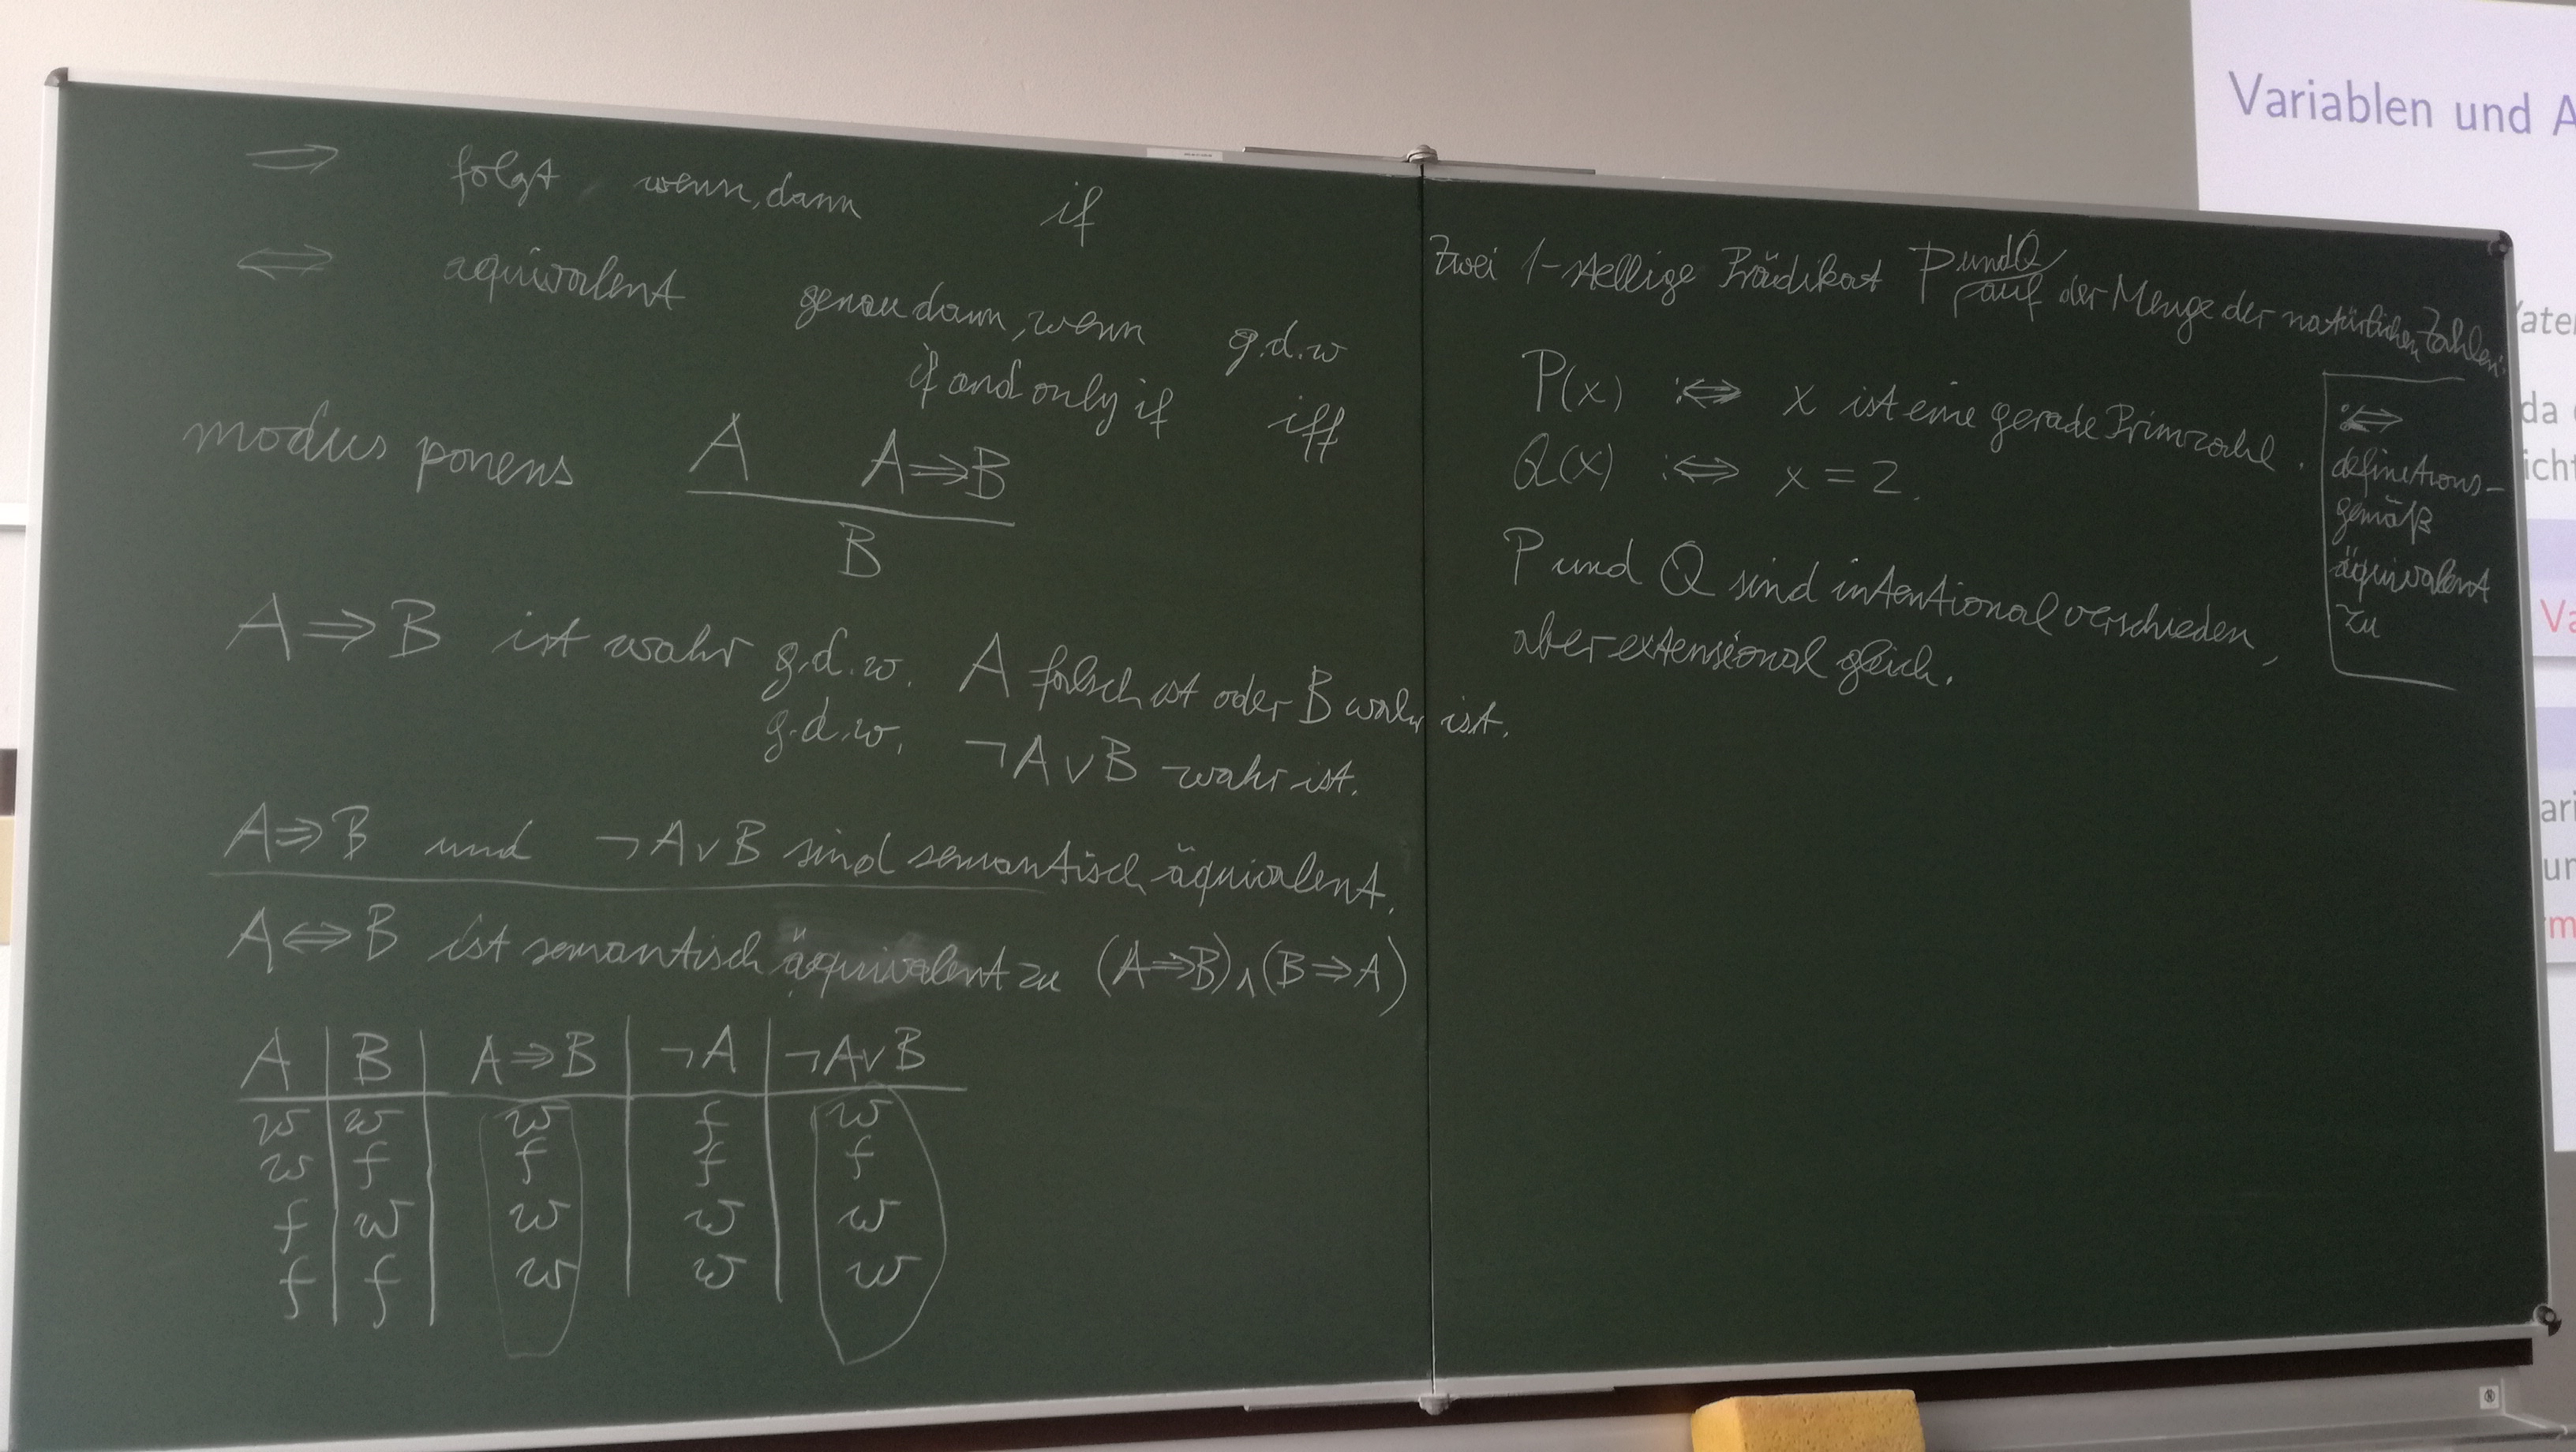 ⇒ folgt, wenn, dann if
⇔ äquivalent genau dann, wenn g.d.w
if and only if iff
modus ponens A A⇒B
B
A⇒B ist wahr g.d.w. A falsch ist oder B wahr ist.
g.d.w. ¬A∨B wahr ist.
A⇒B und ¬A∨B sind semantisch äquivalent.
A⇔B ist semantisch äquivalent zu (A⇒B)∧(B⇒A)
A B A⇒B ¬A ¬A∨B
w w w f w
w f f f f
f w w w w
f f w w w
Zwei 1-stellige Prädikat P und Q auf der Menge der natürlichen Zahlen:
P(x) :⇔ x ist eine gerade Primzahl.
Q(x) :⇔ x = 2.
P und Q sind intentional verschieden,
aber extensional gleich.
:⇔
definitions-
gemäß
äquivalent
zu
Variablen und A
da
icht
Va
ari